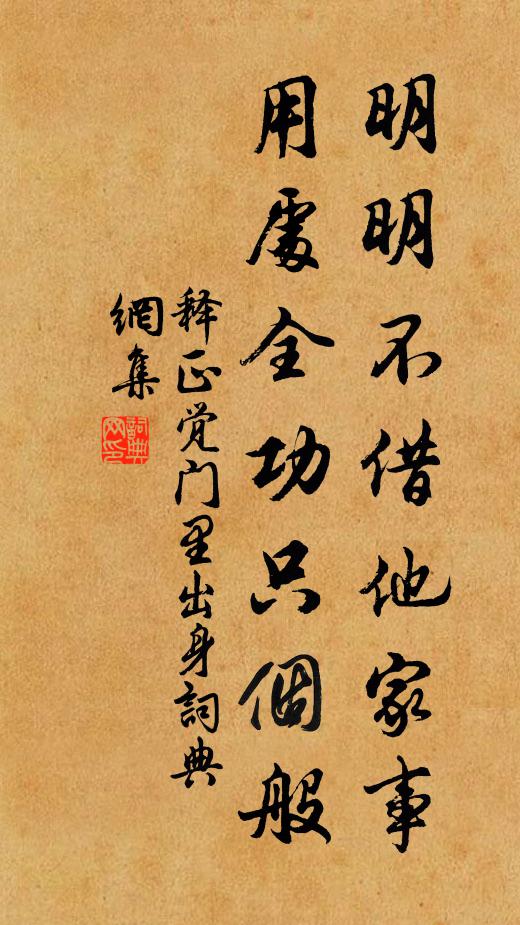 明明不借他家事
用處全功只個般
释正觉门里出身詞典
網集
詞典
网印